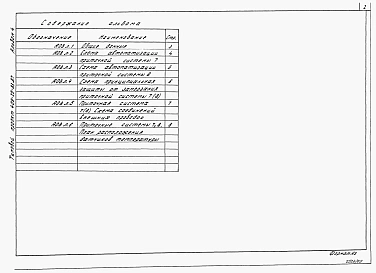 2
Содержание альбома
Альбом 4
Обозначение Наименование Стр.
АОВ.л.1 Общие данные 3
АОВ.л.2 Схема автоматизации 4
приточной системы 7
АОВ.л.3 Схема автоматизации 5
приточной системы 8
АОВ.л.4 Схема принципиальная 6
защиты от замерзания
приточной системы 7(8)
АОВ.л.5 Приточная система 7
7(8) Схема соединений
внешних проводок
АОВ.л.6 Приточные системы 7,8. 8
План расположения
датчиков температуры
Типовой проект
Формат А3